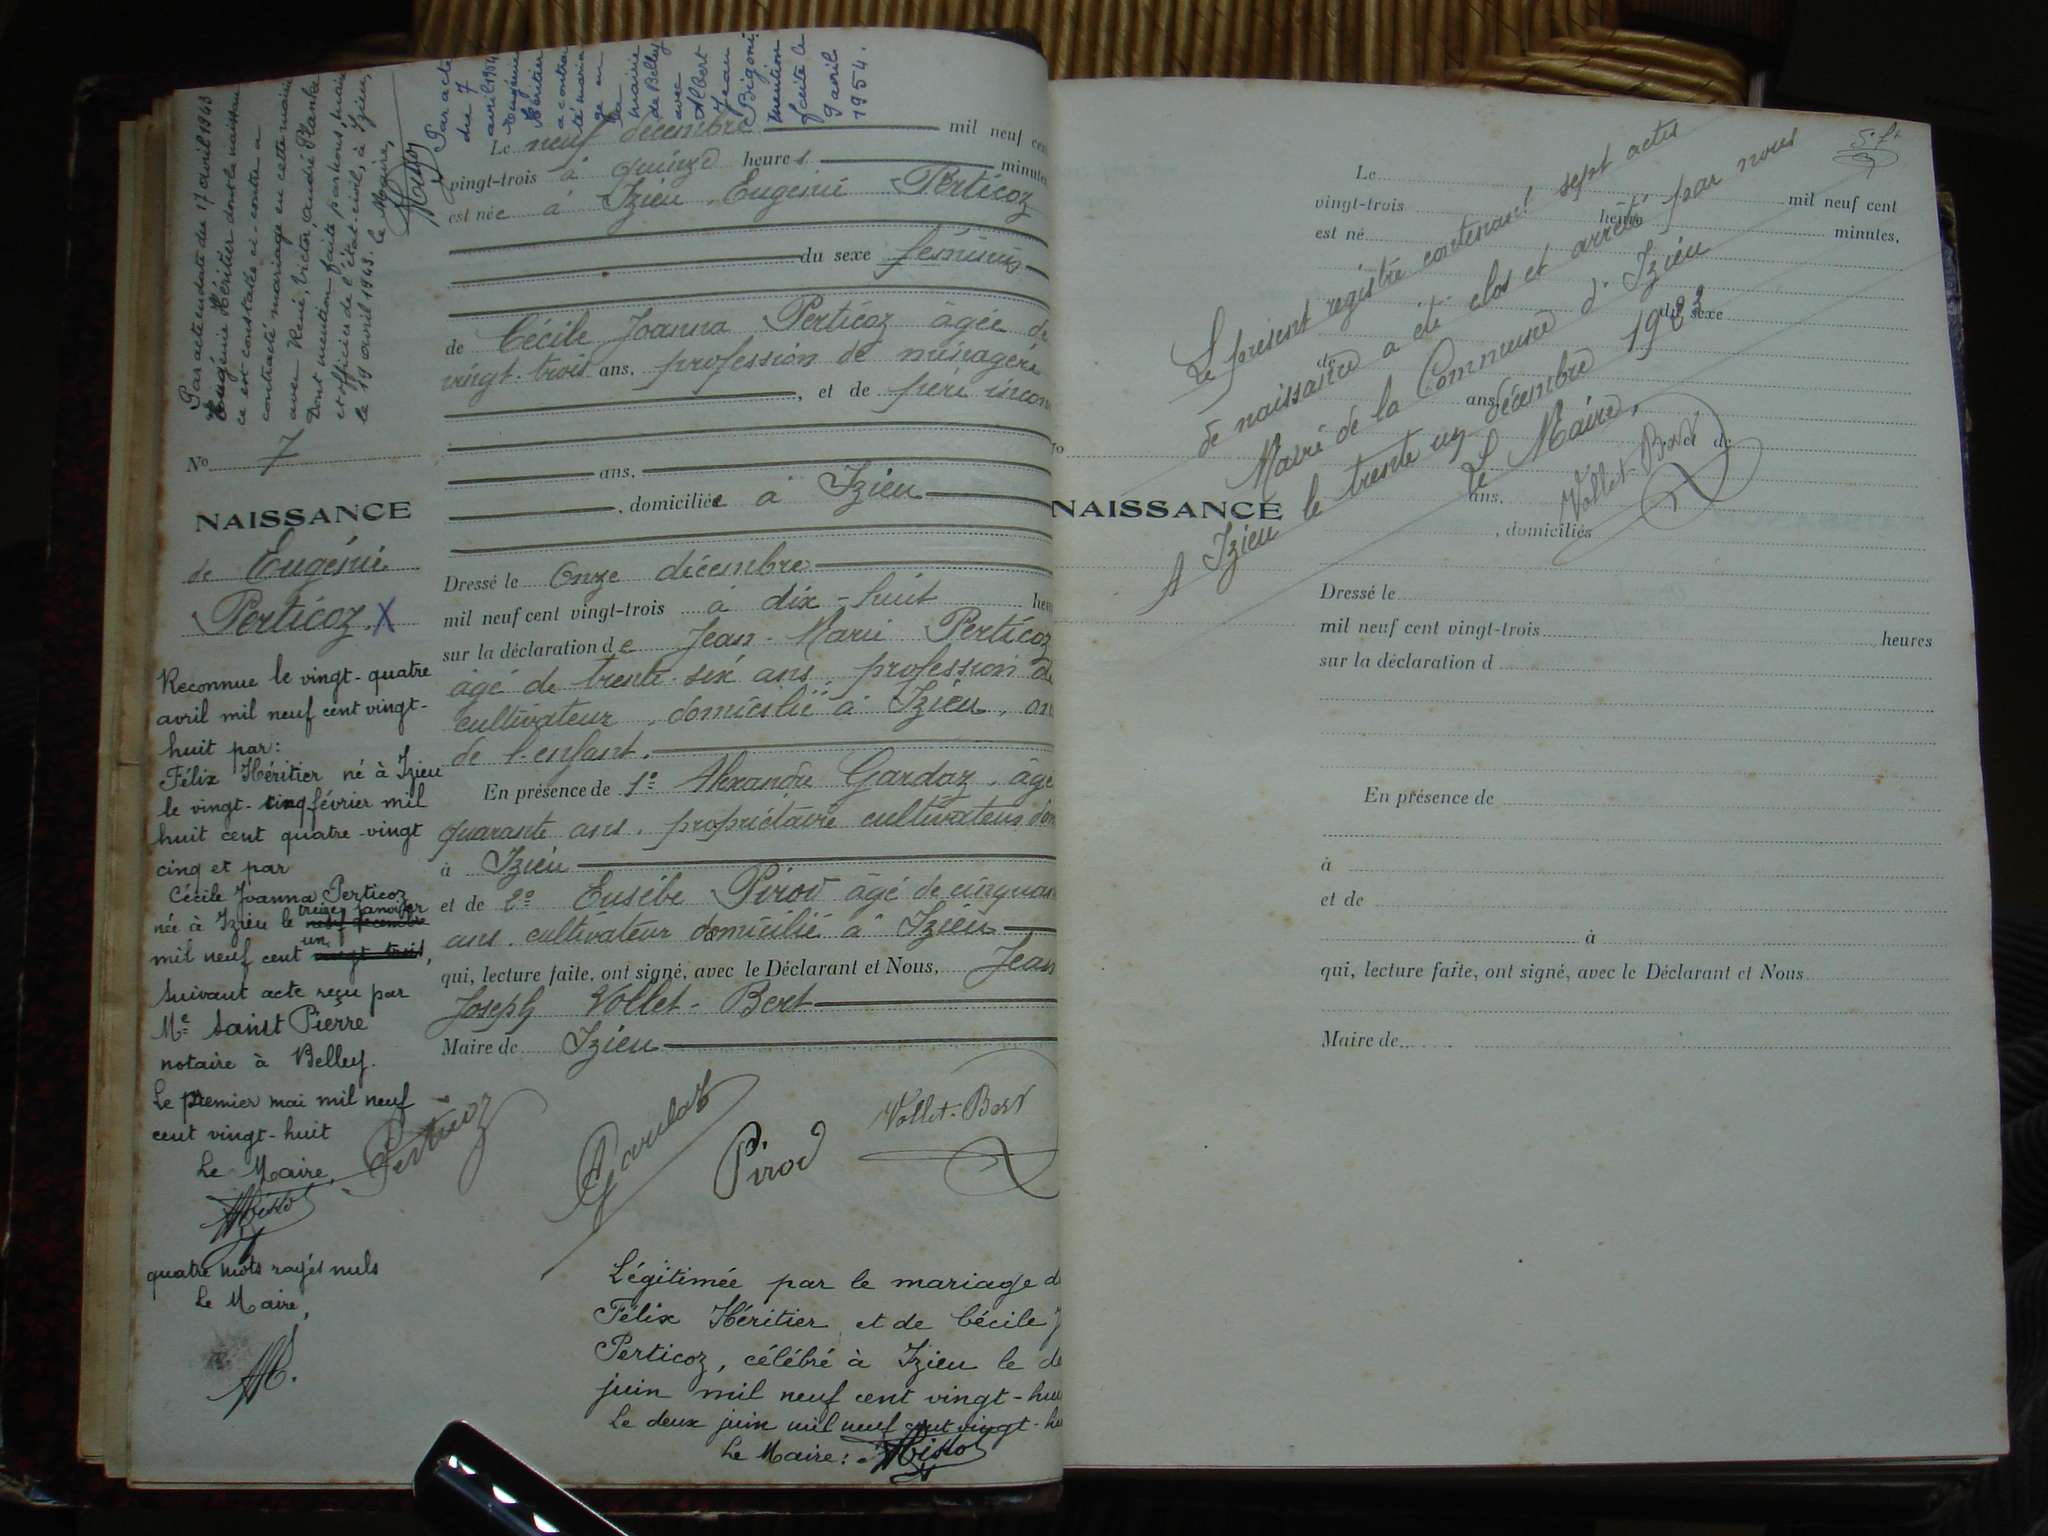 Par acte en date du 17 avril 1943
Eugénie Héritier dont la naissan
ce est constatée ci-contre a
contracté mariage en cette mairie
avec René, Victor, André Planka
Dont mention faite par nous, maire
et officier de l'état-civil, à Izieu,
le 19 avril 1943. le Maire,
Par acte
du 7
avril 1954
Eugénie
Héritier
a contrac
té maria
ge en
la
mairie
de Belley
avec
Albert
Jean
Bigoni.
mention
faite le
9 avril
1954.
No 7
NAISSANCE
de Eugénie
Perticoz X
Reconnue le vingt-quatre
avril mil neuf cent vingt-
huit par:
Félix Héritier né à Izieu
le vingt-cinq février mil
huit cent quatre-vingt
cinq et par
Cécile Joanna Perticoz
treize janvier
née à Izieu le neuf decembre
un
mil neuf cent vingt trois,
suivant acte reçu par
Me Saint Pierre
notaire à Belley.
Le premier mai mil neuf
cent vingt-huit
Le Maire,
quatre mots rayés nuls
Le Maire,
Le neuf décembre mil neuf cent
vingt-trois à quinze heures minutes
est née à Izieu, Eugénie Perticoz
du sexe féminin
de Cécile Joanna Perticoz âgée de
vingt-trois ans, profession de ménagère
, et de père incon
ans,
, domiciliée à Izieu
Dressé le Onze décembre
mil neuf cent vingt-trois à dix-huit heu
sur la déclaration de Jean-Marie Perticoz
âgé de trente-six ans, profession de
cultivateur, domicilié à Izieu, on
de l'enfant.
En présence de 1° Alexandre Gardaz, âgé
quarante ans, propriétaire cultivateur dom
à Izieu
et de 2° Eusèbe Pirod âgé de cinquan
ans, cultivateur domicilié à Izieu
qui, lecture faite, ont signé, avec le Déclarant et Nous, Jean
Joseph Vollet-Bert
Maire de Izieu
Perticoz
Pirod
Vollet-Bert
Légitimée par le mariage d
Félix Héritier et de Cécile J
Perticoz, célébré à Izieu le de
juin mil neuf cent vingt-hui
Le deux juin mil neuf cent vingt-hu
Le Maire:
Le mil neuf cent
vingt-trois heure minutes.
est né
du sexe
de
ans,
et de
ans,
, domiciliés
No
NAISSANCE
Le présent registre contenant sept actes
de naissance a été clos et arrêté par nous
Maire de la Commune d'Izieu
A Izieu le trente un décembre 1923
Le Maire,
Vollet-Bert
Dressé le
mil neuf cent vingt-trois heures
sur la déclaration d
En présence de
à
et de
à
qui, lecture faite, ont signé, avec le Déclarant et Nous
Maire de